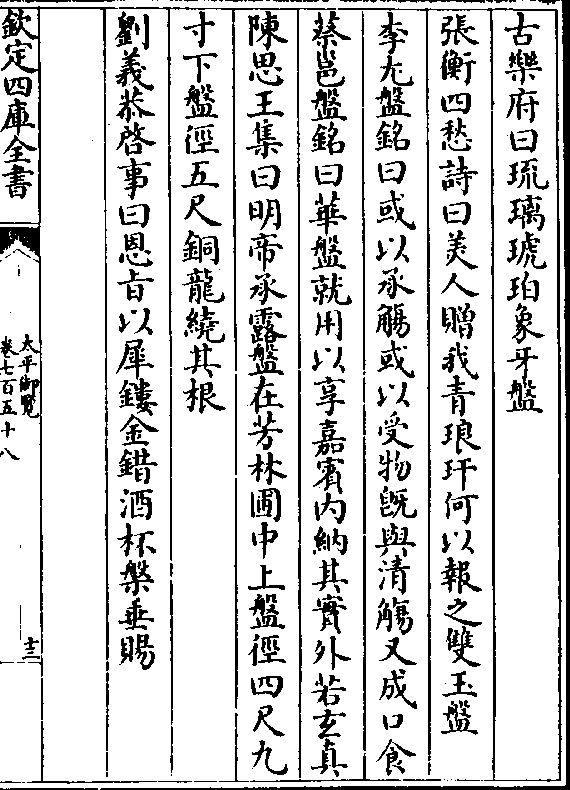 古樂府曰琉璃琥珀象牙盤
張衡四愁詩曰美人贈我青琅玕何以報之雙玉盤
李尤盤銘曰或以承觴或以受物既與清觴又成口食
蔡邕盤銘曰華盤就用以享嘉賓内納其實外若玄真
陳思王集曰明帝承露盤在芳林園中上盤徑四尺九
寸下盤徑五尺銅龍繞其根
劉義恭啓事曰恩旨以犀鏤金錯酒杯槃垂賜
欽定四庫全書
太平御覽
卷七百五十八
十三